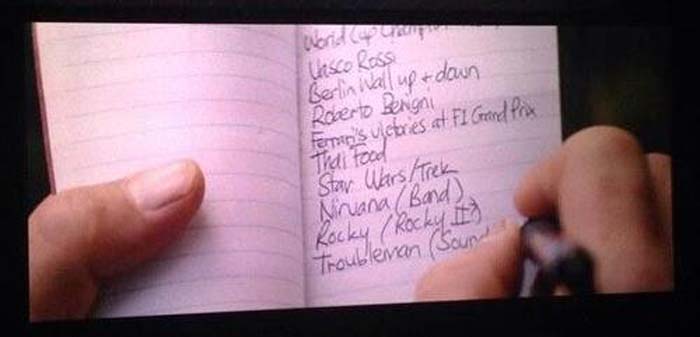 World Cup Champio
Vasco Rossi
Berlin Wall up + down
Roberto Benigni
Ferrari's victories at F1 Grand Prix
Thai Food
Star Wars/Trek
Nirvana (Band)
Rocky (Rocky II?)
Troubleman (Sound